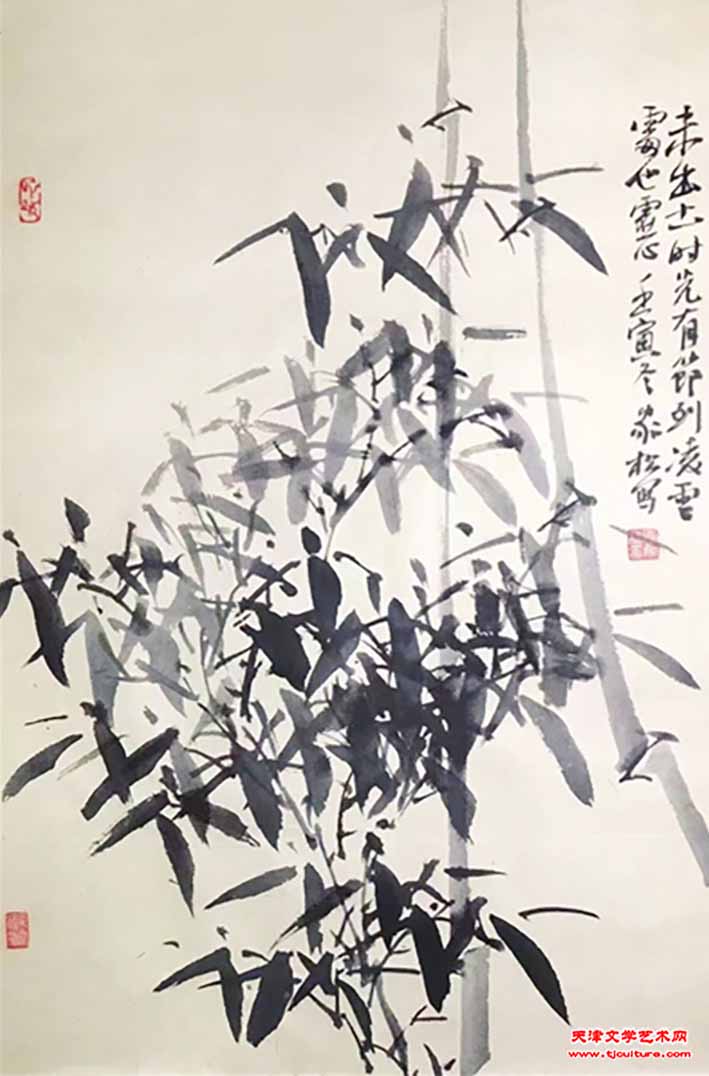 未出土时先有節到凌雲
處也虛心 壬寅冬 家松写
天津文学艺术网
www.tjculture.com